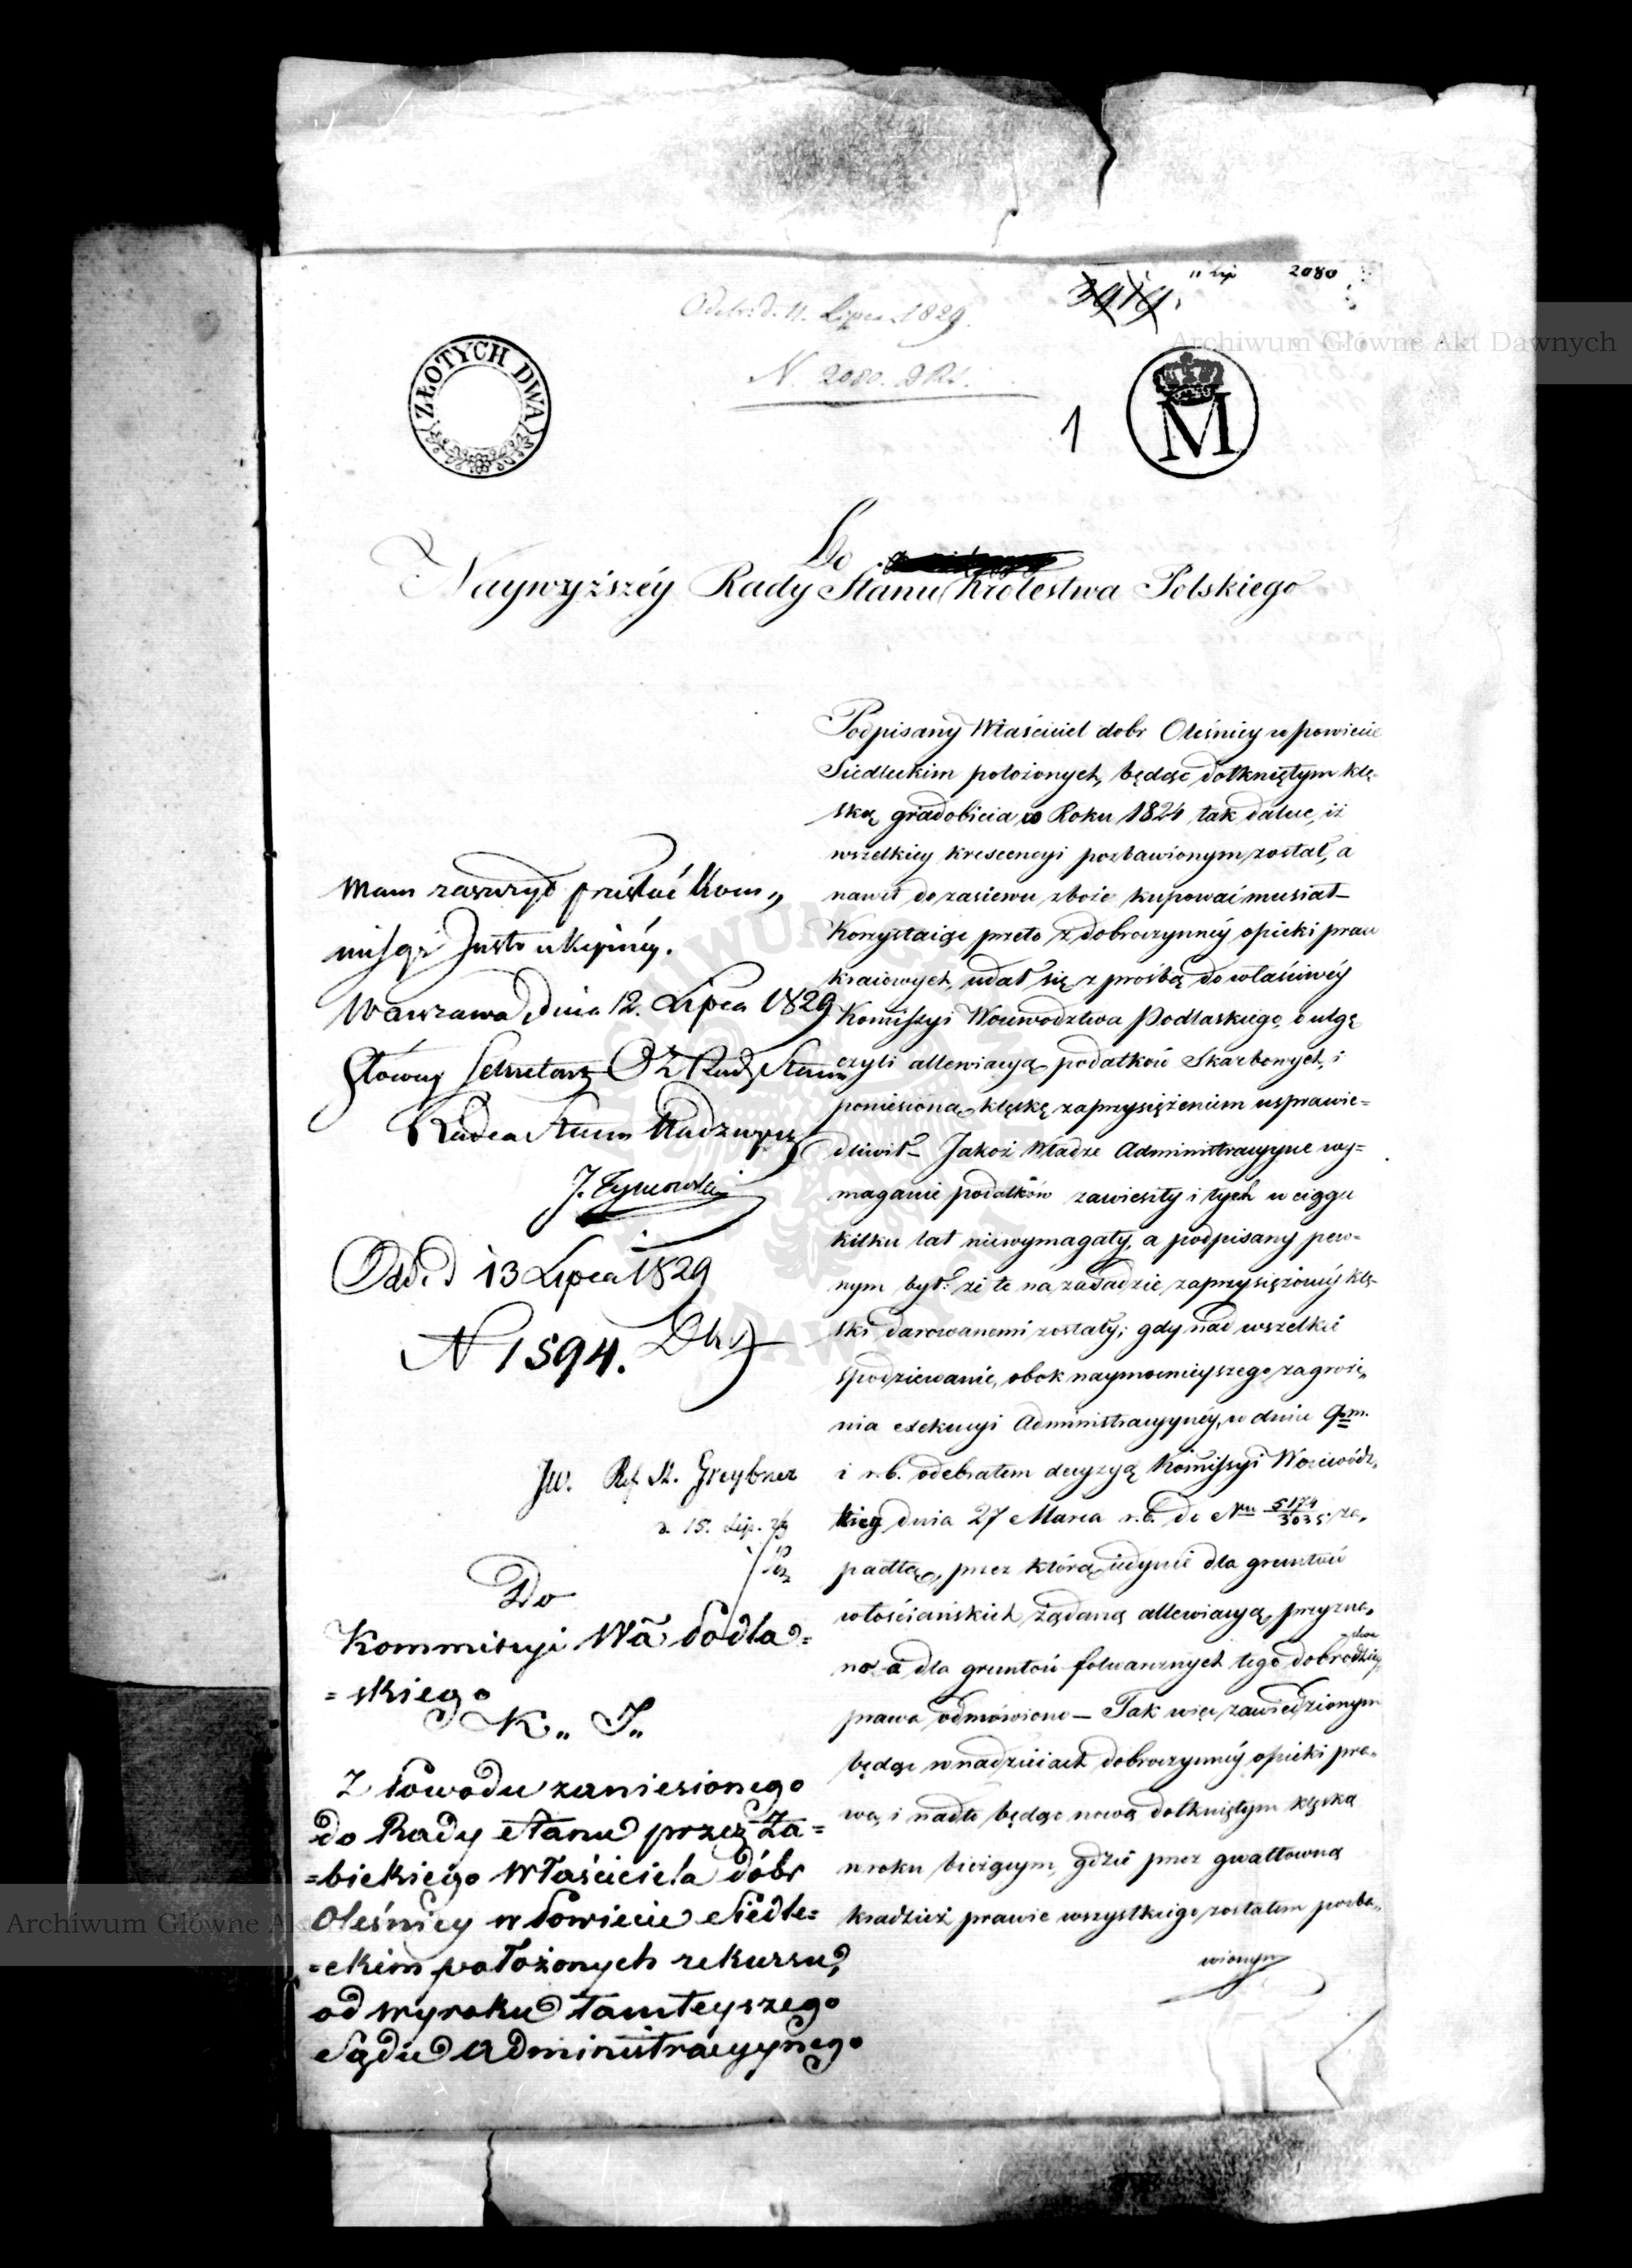 11 Lip 2080
3919.
Odebr: d. 11. Lipca 1829.
N. 2080.
Archiwum Główne Akt Dawnych
ZŁOTYCH DWA
1
M
Do
Naywyższéy Rady Stanu Królestwa Polskiego
Podpisany Właściciel dobr Oleśnicy w powiecie
Siedleckim położonych, będąc dotkniętym klę-
ską gradobicia w Roku 1824 tak dalece, iż
wszelkiey krescencyi pozbawionym został, a
nawet do zasiewu zboże kupować musiał –
Korzystaiąc przeto z dobroczynnéy opieki praw
kraiowych, udał się z prośbą do właściwéy
Kommissyi Woiewodztwa Podlaskiego, o ulgę
czyli allewiacyą podatków Skarbowych, i
poniesioną klęskę zaprzysiężeniem usprawie=
dliwił – Jakoż Władze Administracyyne wy=
maganie podatków zawiesiły i tych w ciągu
kilku lat niewymagały, a podpisany pew-
nym był: że te na zasadzie zaprzysiężonéy klę-
ski darowanemi zostały; gdy nad wszelkie
spodziewanie, obok naymocnieyszego zagroże„
nia exekucyi Administracyynéy, w dniu 9 m.
i r. b. odebrałem decyzyą Kommissyi Woiewódz„
kiey dnia 27 Marca r. b. do Nru 5174/3035 za„
padłą, przez którą iedynie dla gruntów
włościańskich żądaną allewiacyą, przyzna„
no a dla gruntów folwarcznych tego dobrodziey„
stwa
prawa odmówiono – Tak więc zawiedzionym
będąc w nadzieiach dobroczynnéy opieki pra„
wa, i nadto będąc nową dotkniętym klęską
w roku bieżącym, gdzie przez gwałtowną
kradzież prawie wszystkiego zostałem pozba„
wionym
Mam zaszczyt przesłać Kom„
missyi Instrukcyinéy.
Warszawa dnia 12. Lipca 1829
Główny Sekretarz Rady Stanu
Radca Stanu Nadzwycz
J. Tymowski
Odd. d 13 Lipca 1829
N 1594.
JW. Ref. St. Greybner
d. 15. Lip. 29
Do
Kommissyi Wa Podla=
=skiego
K„ J„
Z Powodu zaniesionego
do Rady Stanu przez Za=
=bickiego Właściciela dóbr
Oleśnicy w Powiecie Siedle=
=ckim położonych rekursu,
od wyroku tamteyszego
Sądu Administracyynego
Archiwum Główne Ak